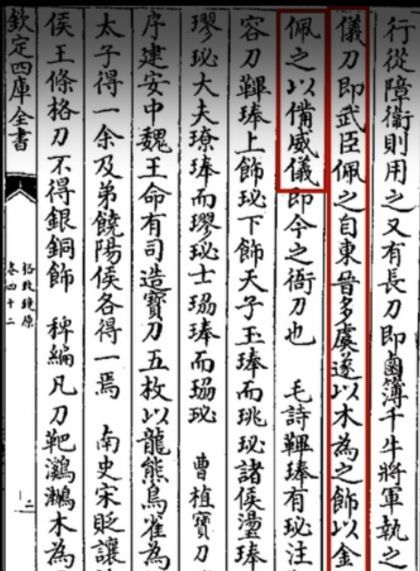 行從障衞則用之又有長刀即鹵簿千牛將軍執之
儀刀即武臣佩之自東晉多虞遂以木為之飾以金
佩之以備威儀即今之衙刀也　毛詩鞸琫有珌注
容刀鞸琫上飾珌下飾天子玉琫而珧珌諸侯璗琫
璆珌大夫璙琫而璆珌士珕琫而珕珌　曹植寶刀
序建安中魏王命有司造寶刀五枚以龍熊鳥雀為
太子得一余及弟饒陽侯各得一焉　南史宋貶讓
侯王條格刀不得銀銅飾　稗編凡刀靶鸂鶒木為
欽定四庫全書
格致鏡原
卷四十二
二